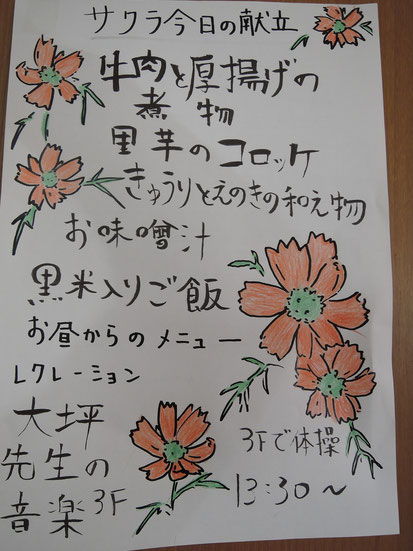 サクラ今日の献立
牛肉と厚揚げの
煮物
里芋のコロッケ
きゅうりとえのきの和え物
お味噌汁
黒米入りご飯
お昼からのメニュー
レクレーション
大坪
先生の
音楽3F
3Fで体操
13:30～